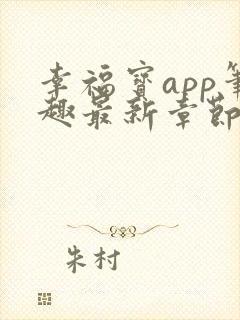 幸福宝app笔
趣最新章节
朱村